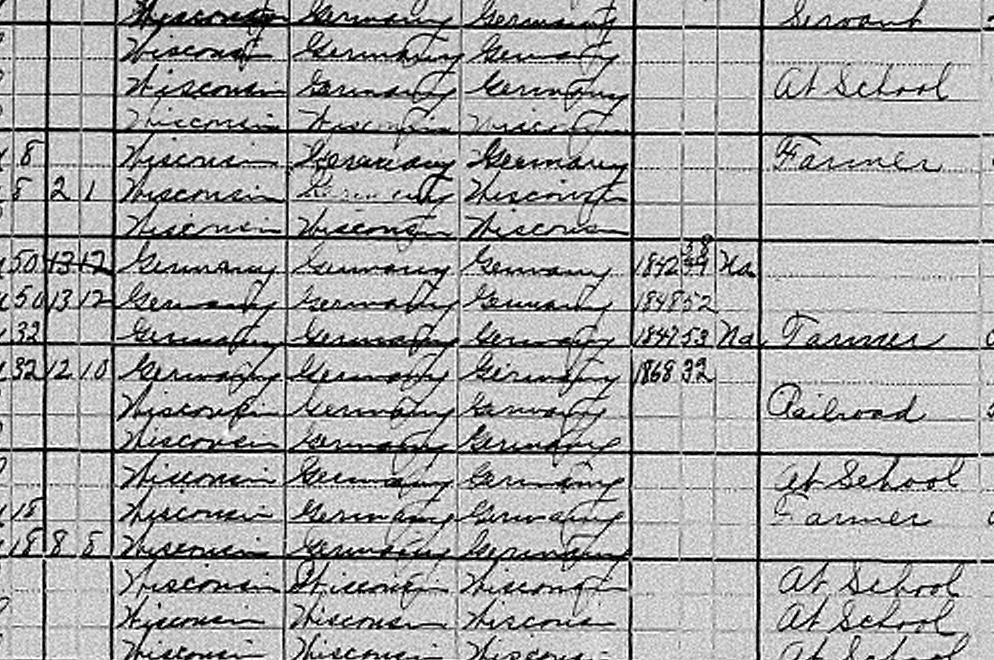 Wisconsin Germany Germany Servant
Wisconsin Germany Germany
Wisconsin Germany Germany At School
Wisconsin Wisconsin Wisconsin
8 Wisconsin Germany Germany Farmer
8 2 1 Wisconsin Germany Wisconsin
Wisconsin Wisconsin Wisconsin
50 13 12 Germany Germany Germany 1842 58 Na
50 13 12 Germany Germany Germany 1848 52
32 Germany Germany Germany 1847 53 Na Farmer
32 12 10 Germany Germany Germany 1868 32
Wisconsin Germany Germany Railroad
Wisconsin Germany Germany
Wisconsin Germany Germany At School
18 Wisconsin Germany Germany Farmer
18 8 8 Wisconsin Germany Germany
Wisconsin Wisconsin Wisconsin At School
Wisconsin Wisconsin Wisconsin At School
Wisconsin Wisconsin Wisconsin At School